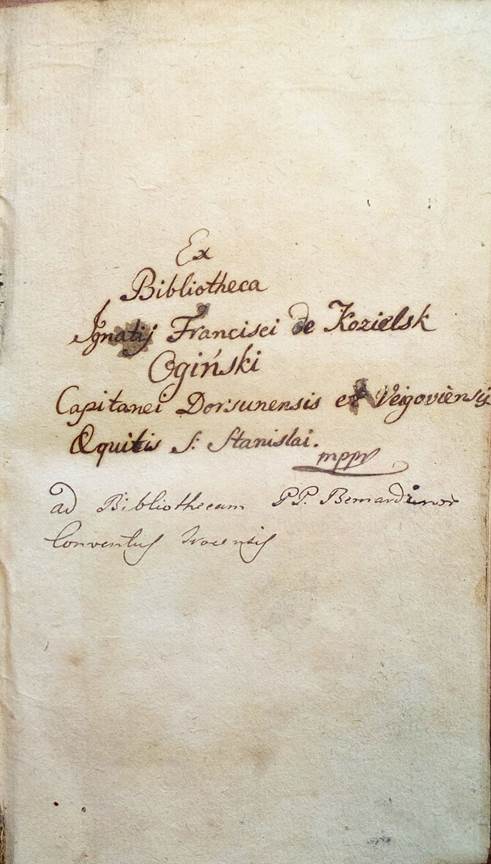 Ex
Bibliotheca
Ignatij Francisci de Kozielsk
Ogiński
Capitanei Dorsunensis et Veigoviensis
Equitis S: Stanislai.
mppr
ad Bibliothecam P.P. Bernardinor
Conventus Trocensis